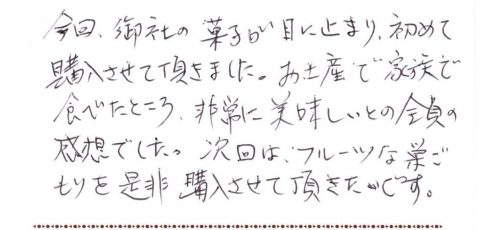 今回、御社の菓子が目に止まり、初めて
購入させて頂きました。お土産で家族で
食べたところ、非常に美味しいとの全員の
感想でした。次回は、フルーツな巣ご
もりを是非購入させて頂きたいです。